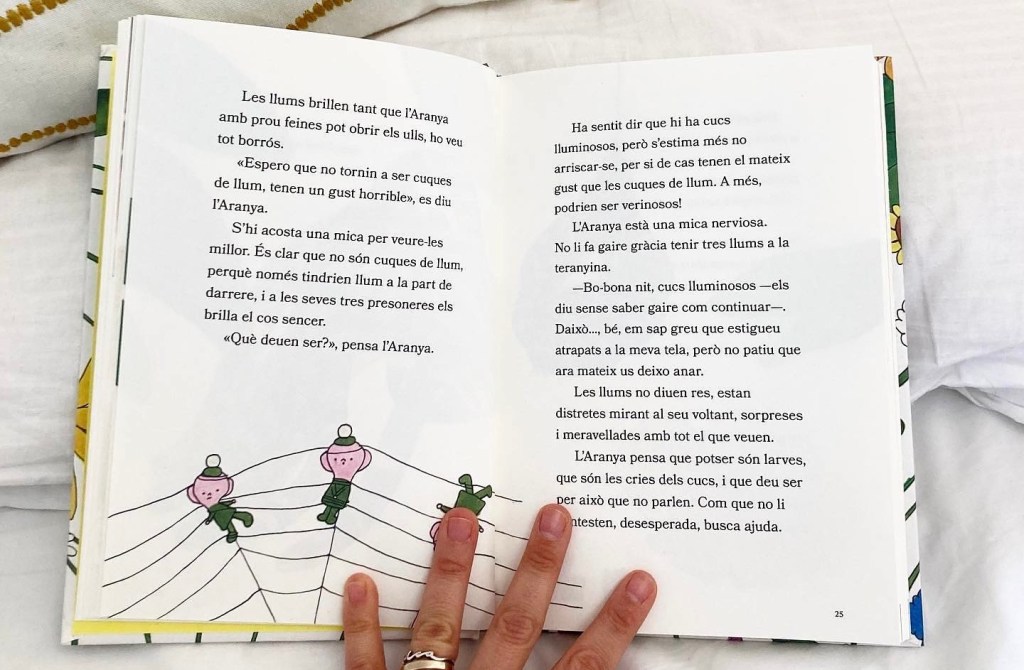 Les llums brillen tant que l'Aranya
amb prou feines pot obrir els ulls, ho veu
tot borrós.
«Espero que no tornin a ser cuques
de llum, tenen un gust horrible», es diu
l'Aranya.
S'hi acosta una mica per veure-les
millor. És clar que no són cuques de llum,
perquè només tindrien llum a la part de
darrere, i a les seves tres presoneres els
brilla el cos sencer.
«Què deuen ser?», pensa l'Aranya.
Ha sentit dir que hi ha cucs
lluminosos, però s'estima més no
arriscar-se, per si de cas tenen el mateix
gust que les cuques de llum. A més,
podrien ser verinosos!
L'Aranya està una mica nerviosa.
No li fa gaire gràcia tenir tres llums a la
teranyina.
—Bo-bona nit, cucs lluminosos —els
diu sense saber gaire com continuar—.
Daixò..., bé, em sap greu que estigueu
atrapats a la meva tela, però no patiu que
ara mateix us deixo anar.
Les llums no diuen res, estan
distretes mirant al seu voltant, sorpreses
i meravellades amb tot el que veuen.
L'Aranya pensa que potser són larves,
que són les cries dels cucs, i que deu ser
per això que no parlen. Com que no li
desesperada, busca ajuda.
25